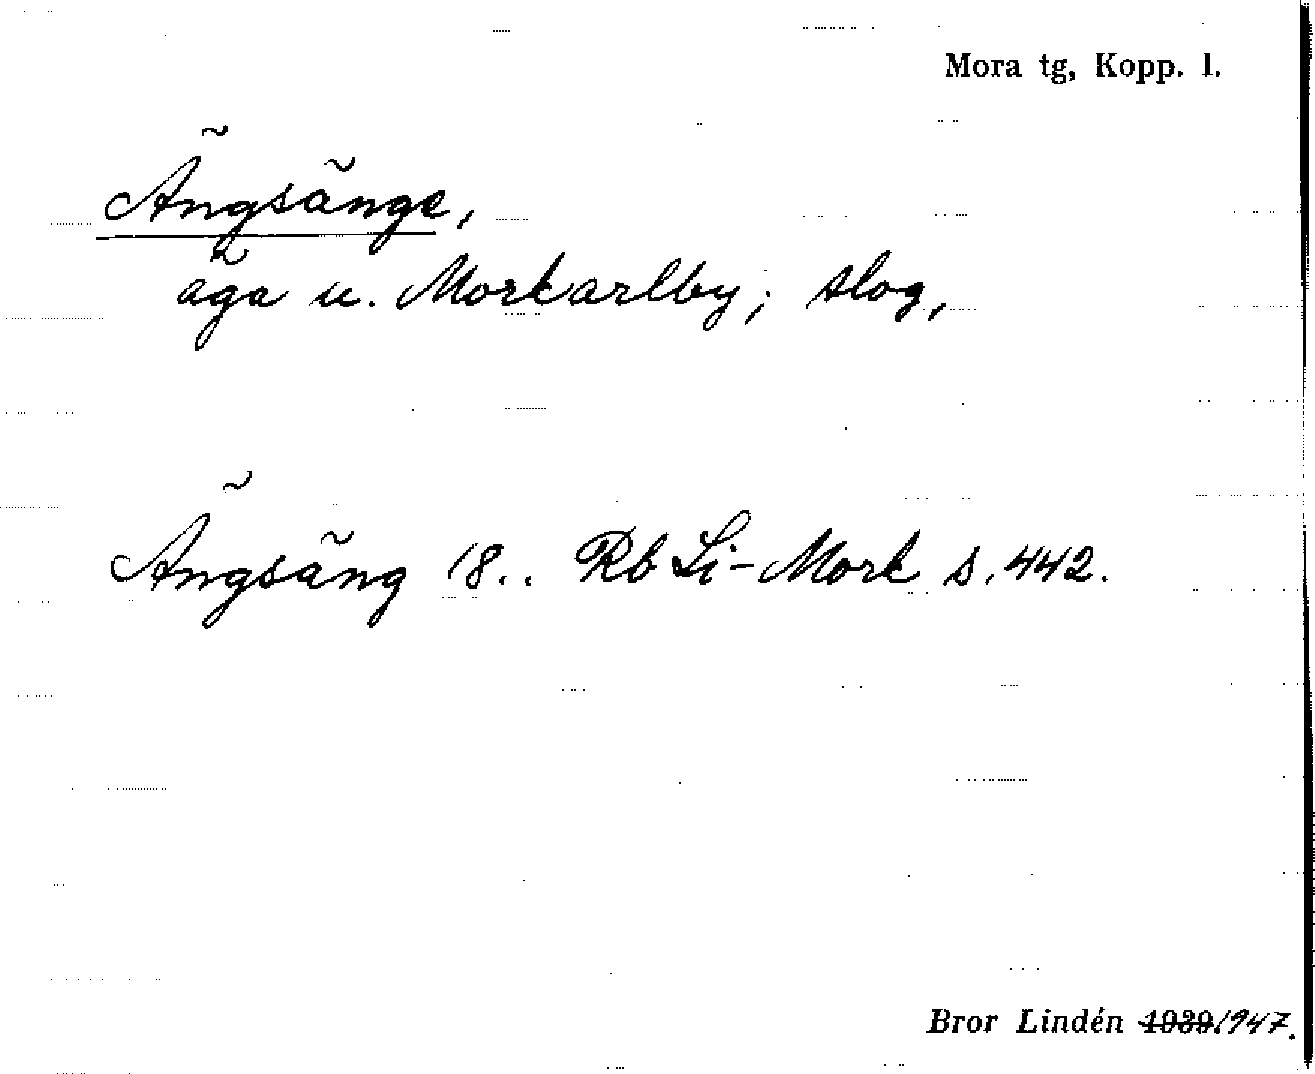 Mora tg, Kopp. l.
Ängsänge,
äga u. Morkarlby; slog,
Ängsäng 18.. Rb Li-Mork s. 442.
Bror Lindén 1939 1947.